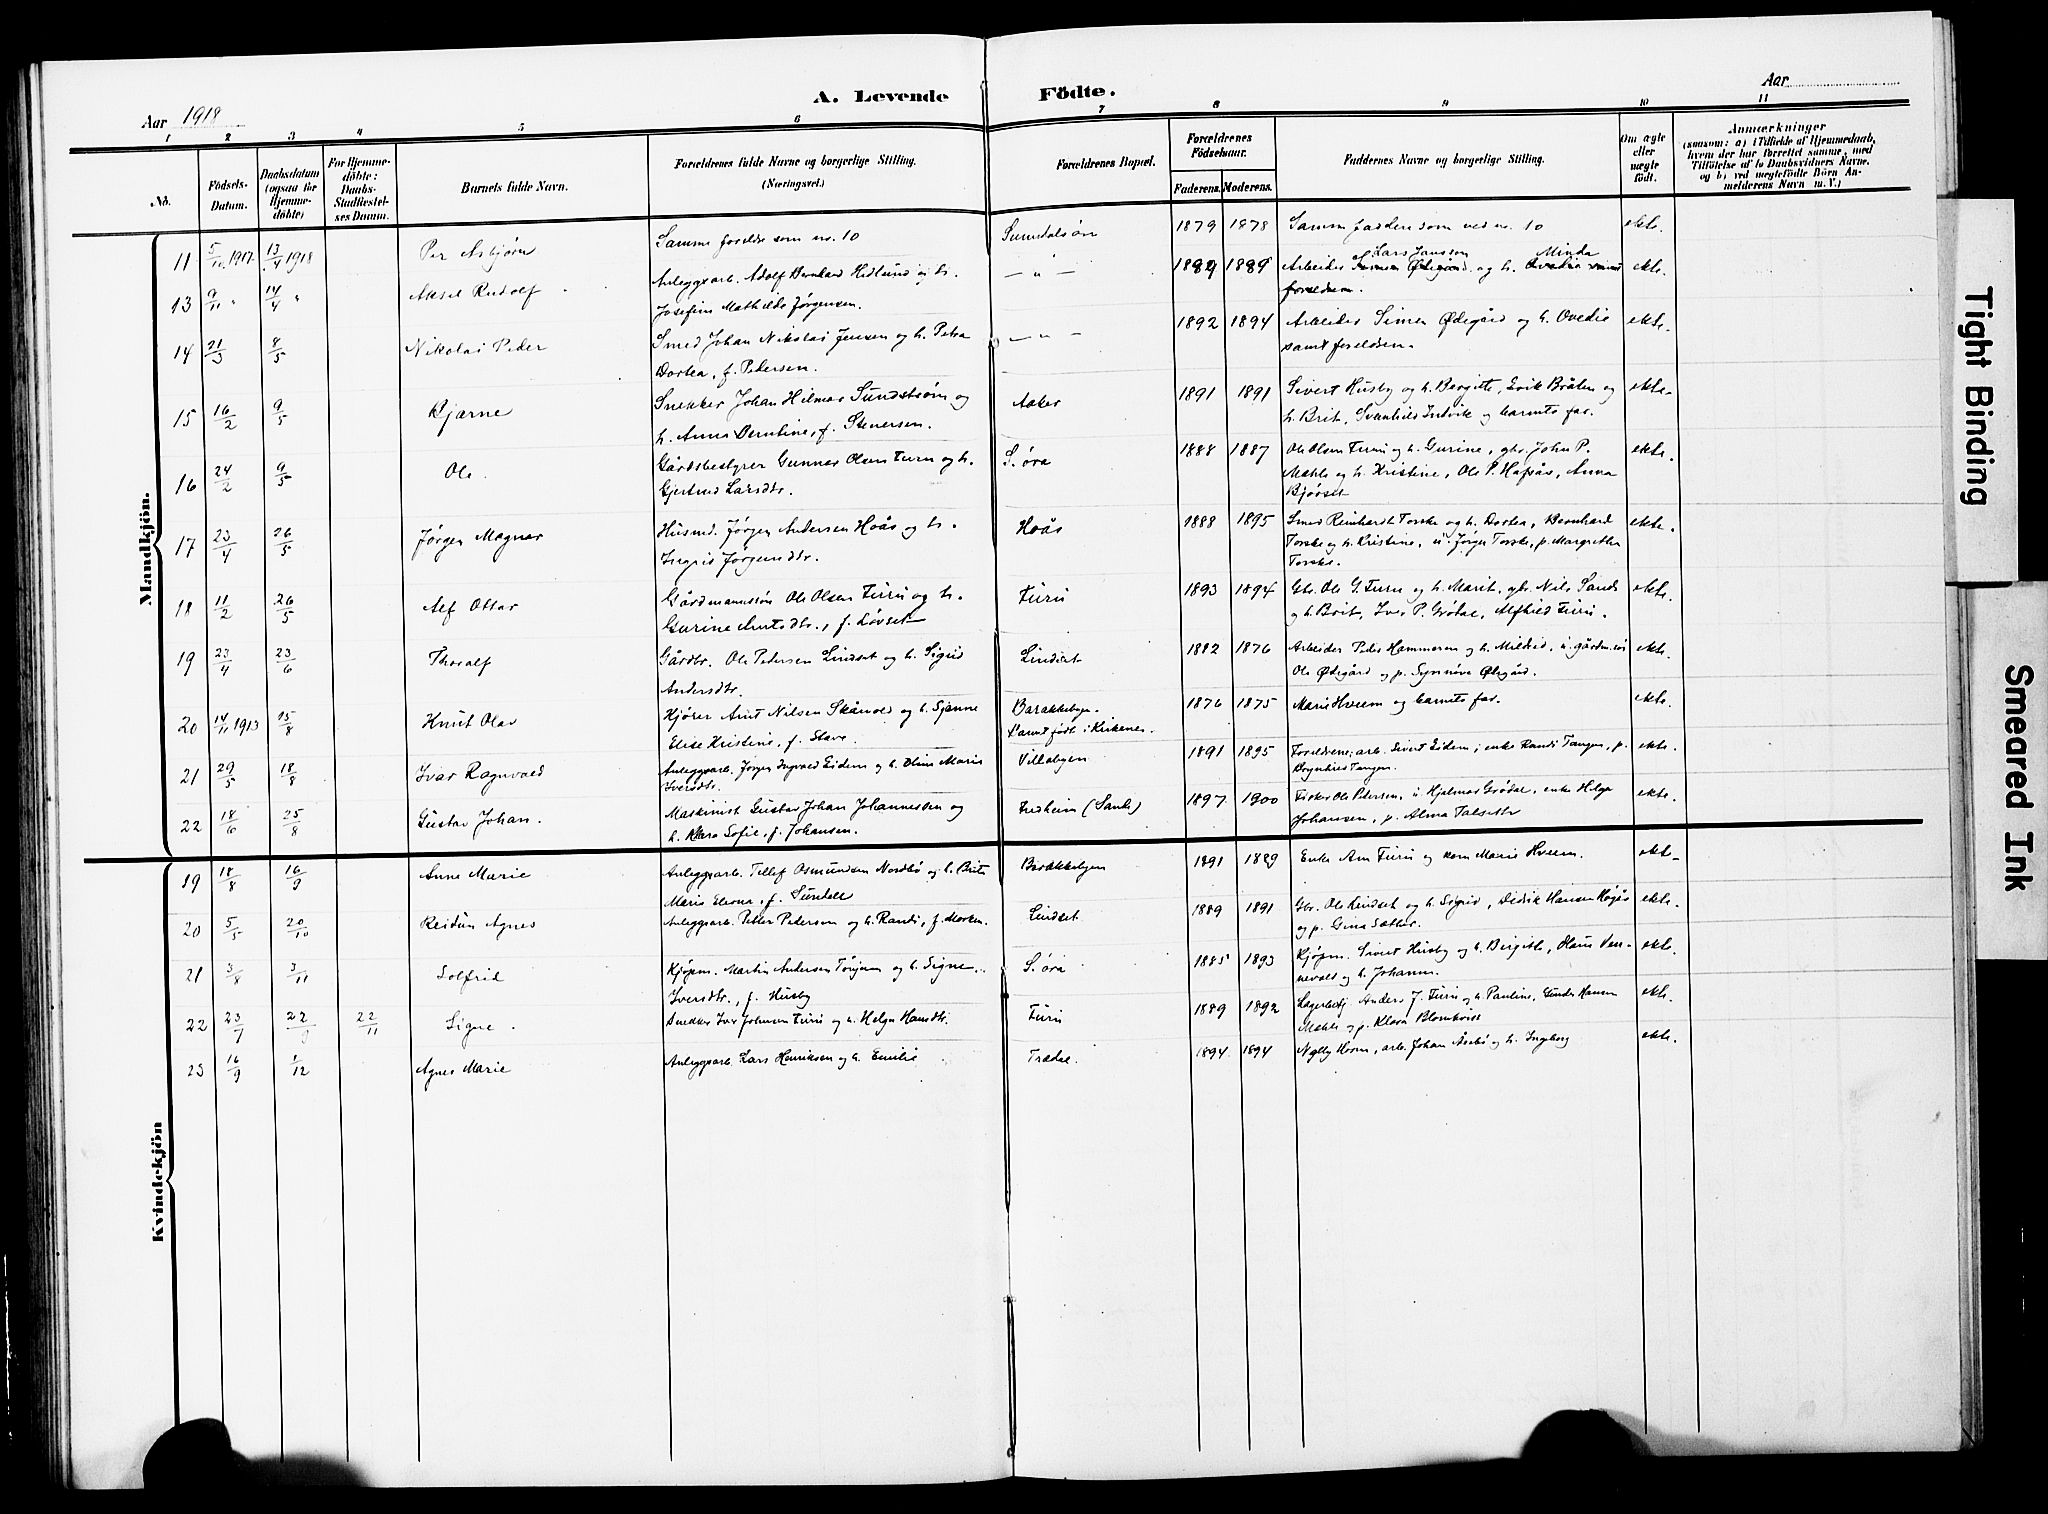 Aar 1918
A. Levende Födte.
Aar
1 2 3 4 5 6 7 8 9 10 11
No.
Födsels-Datum.
Daabsdatum (ogsaa for Hjemmedöbte)
For Hjemmedöbte: Daabs-Stadfæstelses Datum.
Barnets fulde Navn.
Forældrenes fulde Navne og borgerlige Stilling. (Næringsvei.)
Forældrenes Bopæl.
Forældrenes Födselsaar.
Faderens. Moderens.
Faddernes Navne og borgerlige Stilling.
Om ægte eller uægte födt.
Anmærkninger
(saasom: a) i Tilfælde af Hjemmedaab,
hvem der har forrettet samme, med
Tilföielse af to Daabsvidners Navne,
og b) ved uægtefödte Börn Anmelderens Navn m. V.)
Mandkjön.
11 5/11 1917 13/4 1918 Per Asbjørn Samme foreldre som nr. 10 Sunndalsøra 1879 1878 Samme faddere som ved nr. 10 ekte.
13 9/11 " 14/4 " Aksel Rudolf Anleggsarb. Adolf Bernhard Hedlund og h. — " — 1889 Arbeider Lars Janssen og h. Minda ekte.
Josefine Mathilde Jørgensen.
14 21/3 8/5 Nikolai Peder Smed Johan Nikolai Jensen og h. Petra — " — 1892 1894 Arbeider Simen Ødegård og h. Ovedie ekte.
Dortea, f. Pedersen. samt foreldrene.
15 16/2 9/5 Bjarne Snekker Johan Hilmar Sundstrøm og Aaker 1891 1891 Sivert Husby og h. Bergitte, Erik Bråten og ekte.
h. Anna Berntine, f. Stenersen. h. Brit, Svanhild Indvik og barnets far.
16 24/2 9/5 Ole. Gårdsbestyrer Gunnar Olsen Furu og h. S.øra 1888 1887 Ole Olsen Furu og h. Gurine, gbr. John P. ekte.
Gjertrud Larsdtr. Mæhle og h. Kristine, Ole P. Hafsås, Anna
Bjørset
17 23/4 26/5 Jørgen Magnar Husmd. Jørgen Andersen Hoås og h. Hoås 1888 1895 Smed Reinhardt Torske og h. Dortea, Bernhard ekte.
Ingrid Jørgensdtr. Torske og h. Kristine, u. Jørgen Torske, p. Margrethe
Torske.
18 11/2 26/5 Alf Ottar Gårdmannssøn Ole Olsen Furu og h. Furu 1893 1894 Gbr. Ole G. Furu og h. Marit, gbr. Nils Sande ekte.
Gurine Arntsdtr., f. Løvset og h. Brit, Iver P. Grødal, Alfhild Furu.
19 23/4 23/6 Thoralf Gårdbr. Ole Pedersen Lindset og h. Sigrid Lindset 1882 1876 Arbeider Peder Hammeren og h. Mildrid, u. gårdm.søn ekte.
Andersdtr. Ole Ødegård og p. Synnøva Ødegård.
20 14/11 1913 15/8 Knut Olav Kjører Arnt Nilsen Skånvold og h. Sjanne Barakkebyen. 1876 1875 Marie Hveem og barnets far. ekte.
Elise Kristine, f. Stave. Barnet født i Kirkenes.
21 29/5 18/8 Ivar Ragnvald Anleggsarb. Jørgen Ingvald Eidem og h. Oline Marie Villabyen 1891 1895 Foreldrene; arb. Sivert Eidem; enke Randi Tangen, p. ekte.
Iversdtr. Borghild Tangen.
22 18/6 25/8 Gustav Johan. Maskinist Gustav Johan Johannessen og Fredheim (Sande) 1897 1900 Fisker Ole Petersen, u. Hjalmar Grødal, enke Helga ekte.
h. Klara Sofie, f. Johansen. Johansen, p. Alma Talseth
Kvindekjön
19 18/8 16/9 Anne Marie Anleggsarb. Tellef Osmundsen Nordbø og h. Brita Barakkebyen 1891 1889 Enke Ane Furu og kone Marie Hveem. ekte
Marie Elerna, f. Sundell
20 5/5 20/10 Reidun Agnes Anleggsarb. Peter Petersen og h. Randi, f. Morken. Lindset 1889 1891 Gbr. Ole Lindset og h. Sigrid, Didrik Hansen Høgås ekte.
og p. Gina Sæther.
21 3/8 3/11 Solfrid Kjøpm. Martin Andersen Tønjum og h. Signe S. øra 1885 1893 Kjøpm. Sivert Husby og h. Birgitte, Hans Vennevold og h. Johanne. ekte.
Iversdtr., f. Husby
22 23/7 22/9 22/11 Signe Snekker Iver Johnsen Furu og h. Helga Hansdtr. Furu 1889 1892 Lagerbetj. Anders J. Furu og h. Pauline, Gunder Hansen ekte.
Mæhle og p. Klara Blomkvist
23 16/9 1/12 Agnes Marie Anleggsarb. Lars Henriksen og h. Emilie Trædal. 1894 1894 Nylly Horn, arb. Johan Aasbø og h. Ingeborg ekte.
Tight Binding
Smeared Ink